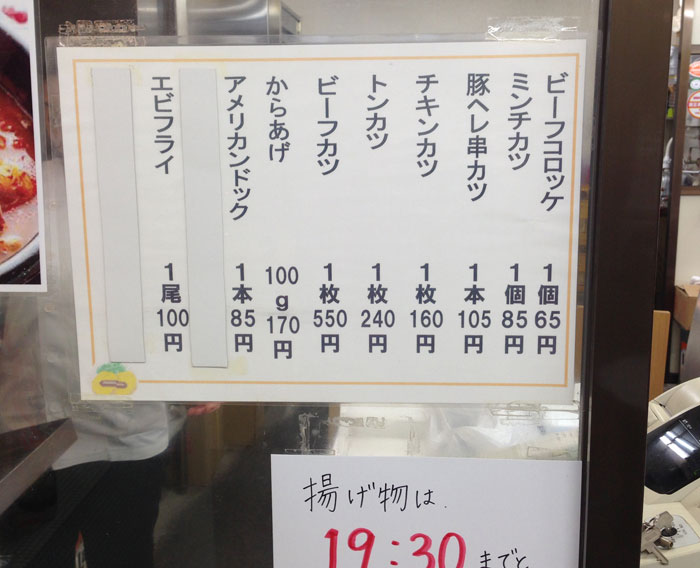 ビーフコロッケ 1個65円
ミンチカツ 1個85円
豚ヘレ串カツ 1本105円
チキンカツ 1枚160円
トンカツ 1枚240円
ビーフカツ 1枚550円
からあげ 100g170円
アメリカンドック 1本85円
エビフライ 1尾100円
揚げ物は
19:30までと